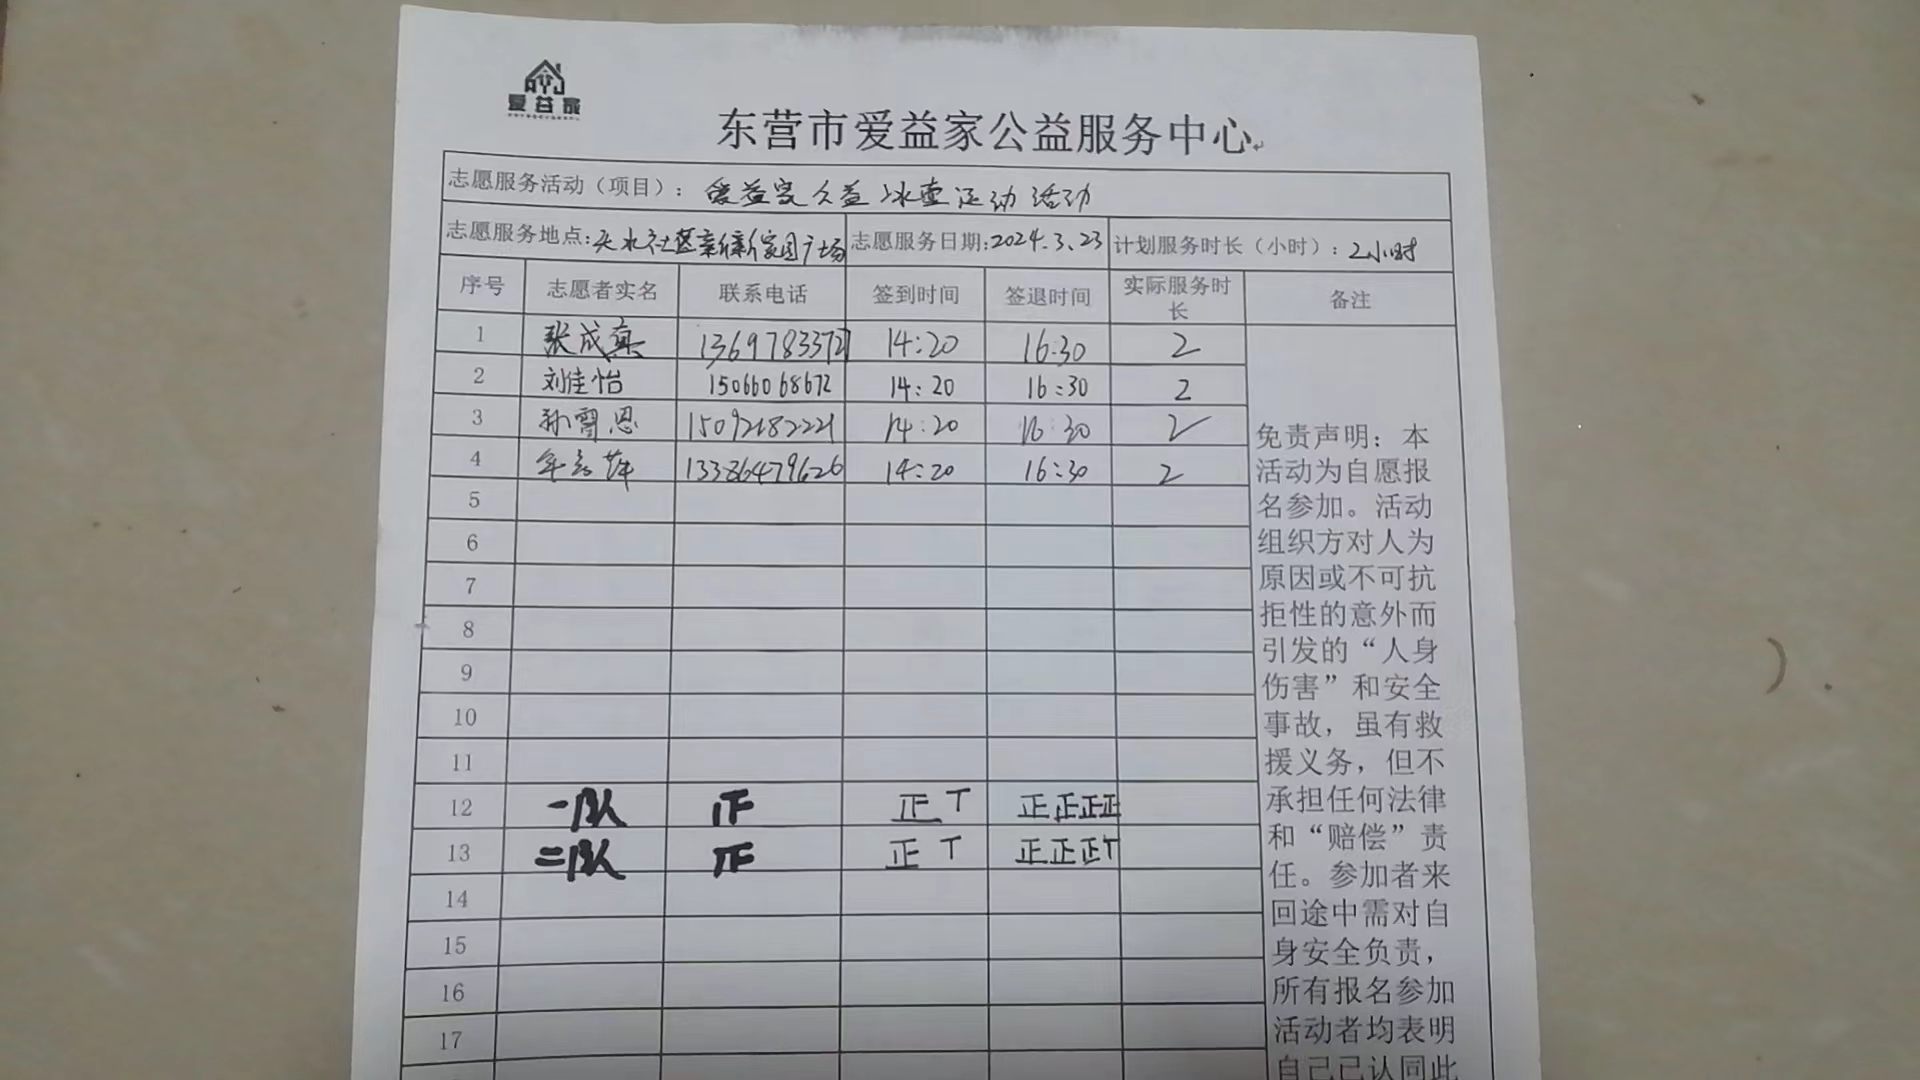 爱益家
东营市爱益家公益服务中心
志愿服务活动（项目）：爱益家公益冰壶运动活动
志愿服务地点： 志愿服务日期：2024.3.23 计划服务时长（小时）：2小时
序号 志愿者实名 联系电话 签到时间 签退时间 实际服务时长 备注
1 张成真 13697833727 14:20 16:30 2
2 刘佳怡 15066068672 14:20 16:30 2
3 孙雪恩 15092182221 14:20 16:30 2
4 13386479626 14:20 16:30 2
5
6
7
8
9
10
11
12 一队 正 正丅 正正正正
13 二队 正 正丅 正正正丅
14
15
16
17
免责声明：本
活动为自愿报
名参加。活动
组织方对人为
原因或不可抗
拒性的意外而
引发的“人身
伤害”和安全
事故，虽有救
援义务，但不
承担任何法律
和“赔偿”责
任。参加者来
回途中需对自
身安全负责，
所有报名参加
活动者均表明
自己已认同此